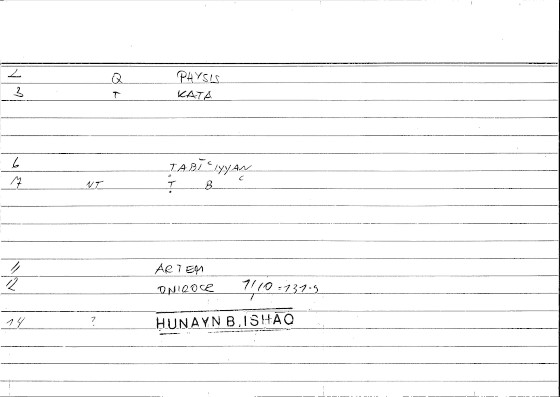 2 Q PHYSIS
3 T KATA
6 ṬABĪʿIYYAN
7 NT Ṭ B ʿ
11 ARTEM
12 ONIROCR 1/10 : 131.9
14 ? HUNAYN B. ISHAQ